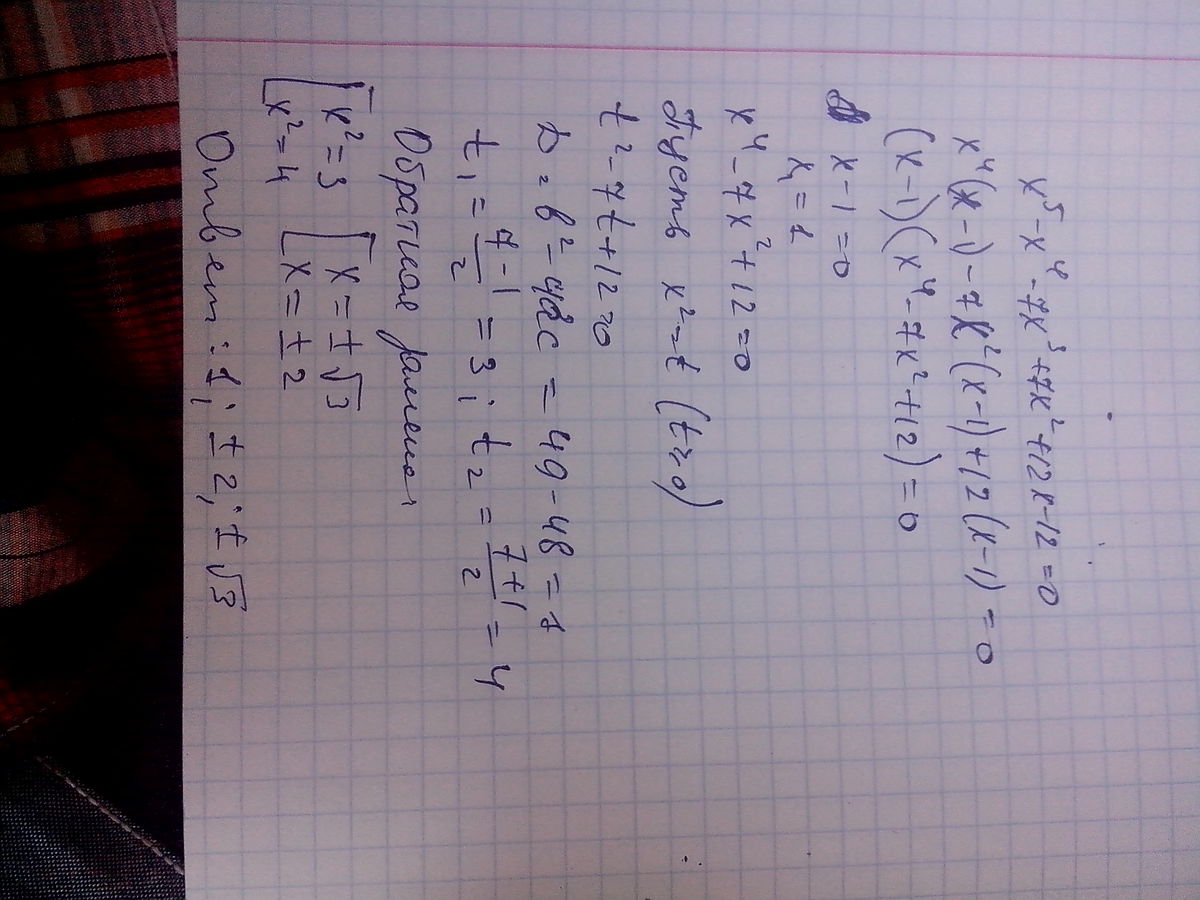 x⁵-x⁴-7x³+7x²+12x-12=0
x⁴(x-1)-7x²(x-1)+12(x-1)=0
(x-1)(x⁴-7x²+12)=0
x-1=0
x₁=1
x⁴-7x²+12=0
Пусть x²=t (t≥0)
t²-7t+12=0
D=b²-4ac=49-48=1
t₁=7-1/2=3; t₂=7+1/2=4
Обратная замена
[x²=3 [x=±√3
[x²=4 [x=±2
Ответ: 1; ±2; ±√3